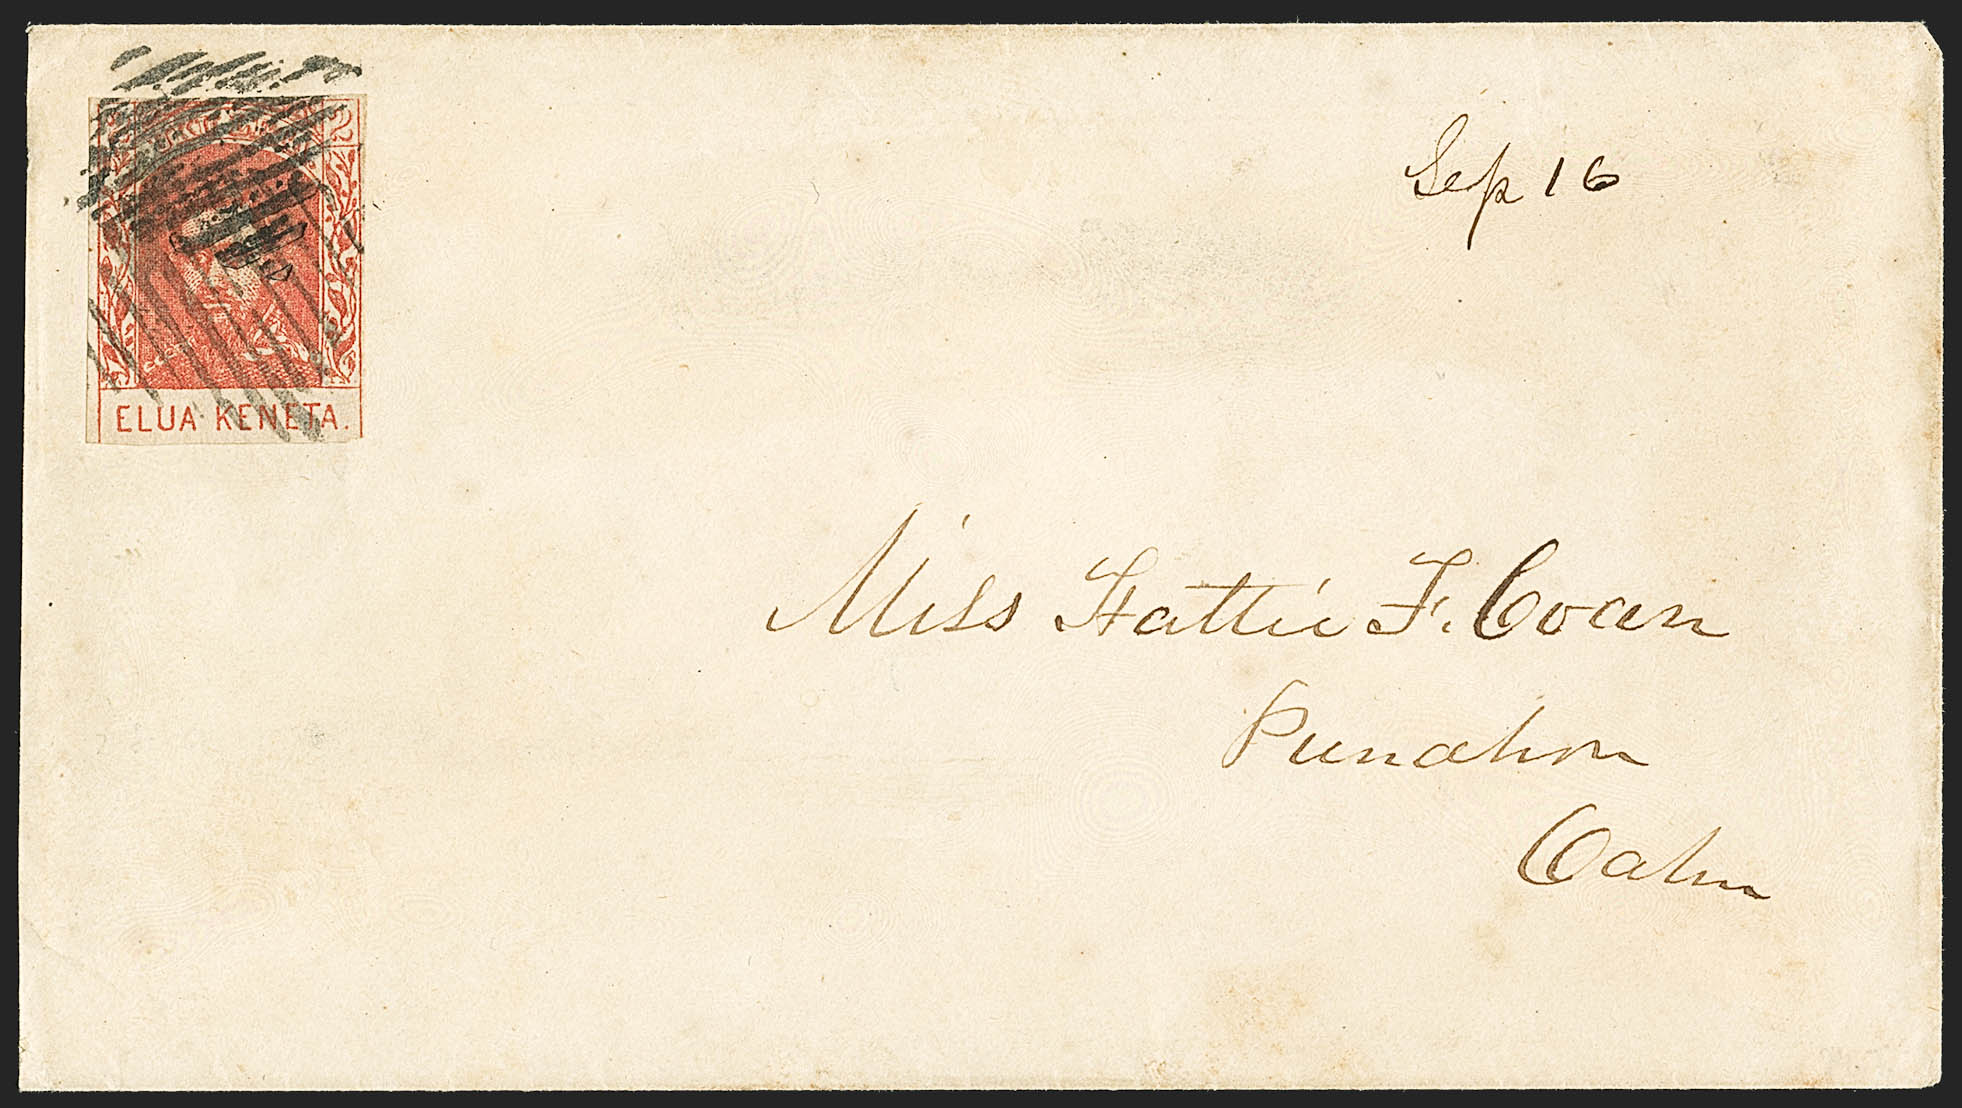 2
ELUA KENETA.
Sep 16
Miss Hattie F. Coan
Punahou
Oahu